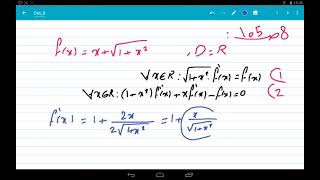 10:36
Def_8
: 8 م 5 ما
f(x) = x + √1+x² , D = R
∀x∈R: √1+x² f'(x) = f(x) (1
∀x∈R: (1+x²) f''(x) + x f'(x) - f(x) = 0 (2
f'(x) = 1 + 2x / 2√1+x² = 1 + x / √1+x²